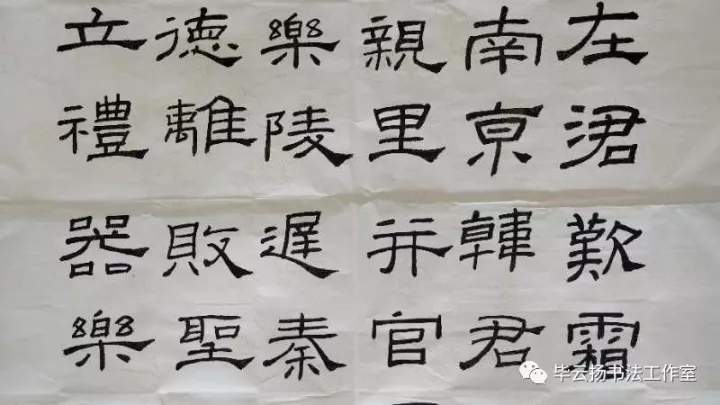 在涒歎霜
南亰韓君
親里并官
樂陵遲秦
德離敗聖
立禮器樂
毕云扬书法工作室